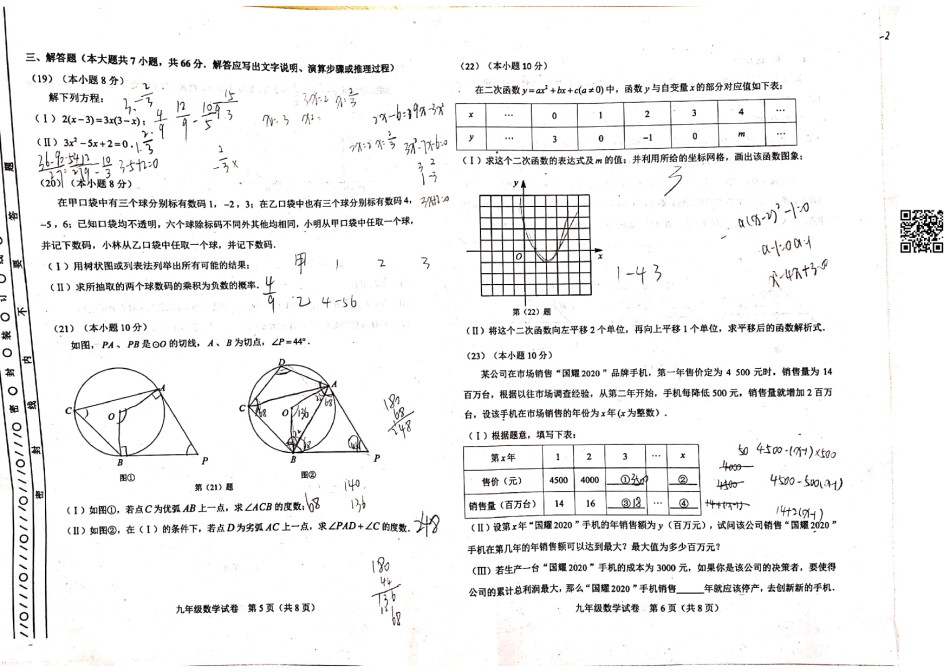 -2
三、解答题（本大题共 7 小题，共 66 分．解答应写出文字说明、演算步骤或推理过程）
（19）（本小题 8 分）
解下列方程：
（Ⅰ）2(x−3)=3x(3−x)；
（Ⅱ）3x²−5x+2=0．
（20）（本小题 8 分）
在甲口袋中有三个球分别标有数码 1，−2，3；在乙口袋中也有三个球分别标有数码 4，
−5，6；已知口袋均不透明，六个球除标码不同外其他均相同，小明从甲口袋中任取一个球，
并记下数码，小林从乙口袋中任取一个球，并记下数码．
（Ⅰ）用树状图或列表法列举出所有可能的结果；
甲 1 2 3
（Ⅱ）求所抽取的两个球数码的乘积为负数的概率．
4/9
乙 4 -5 6
（21）（本小题 10 分）
如图，PA、PB 是⊙O 的切线，A、B 为切点，∠P=44°．
C A O B P
图①
D A C O B P
图②
第（21）题
180
68
248
140
136
（Ⅰ）如图①，若点 C 为优弧 AB 上一点，求∠ACB 的度数；68
（Ⅱ）如图②，在（Ⅰ）的条件下，若点 D 为劣弧 AC 上一点，求∠PAD+∠C 的度数．248
180
44
136
68
九年级数学试卷 第 5 页（共 8 页）
（22）（本小题 10 分）
在二次函数 y=ax²+bx+c(a≠0) 中，函数 y 与自变量 x 的部分对应值如下表：
x … 0 1 2 3 4 …
y … 3 0 −1 0 m …
（Ⅰ）求这个二次函数的表达式及 m 的值；并利用所给的坐标网格，画出该函数图象；
3
y
O x
a(x-2)²-1=0
x²-4x+3=0
1-4 3
第（22）题
（Ⅱ）将这个二次函数向左平移 2 个单位，再向上平移 1 个单位，求平移后的函数解析式．
（23）（本小题 10 分）
某公司在市场销售“国耀 2020”品牌手机，第一年售价定为 4 500 元时，销售量为 14
百万台，根据以往市场调查经验，从第二年开始，手机每降低 500 元，销售量就增加 2 百万
台，设该手机在市场销售的年份为 x 年(x 为整数)．
（Ⅰ）根据题意，填写下表：
第 x 年 1 2 3 … x
售价（元） 4500 4000 ① … ②
销售量（百万台） 14 16 ③18 … ④
4500-(x-1)×500
4500-500(x-1)
14+2(x-1)
（Ⅱ）设第 x 年“国耀 2020”手机的年销售额为 y（百万元），试问该公司销售“国耀 2020”
手机在第几年的年销售额可以达到最大？最大值为多少百万元？
（Ⅲ）若生产一台“国耀 2020”手机的成本为 3000 元，如果你是该公司的决策者，要使得
公司的累计总利润最大，那么“国耀 2020”手机销售______年就应该停产，去创新新的手机．
九年级数学试卷 第 6 页（共 8 页）